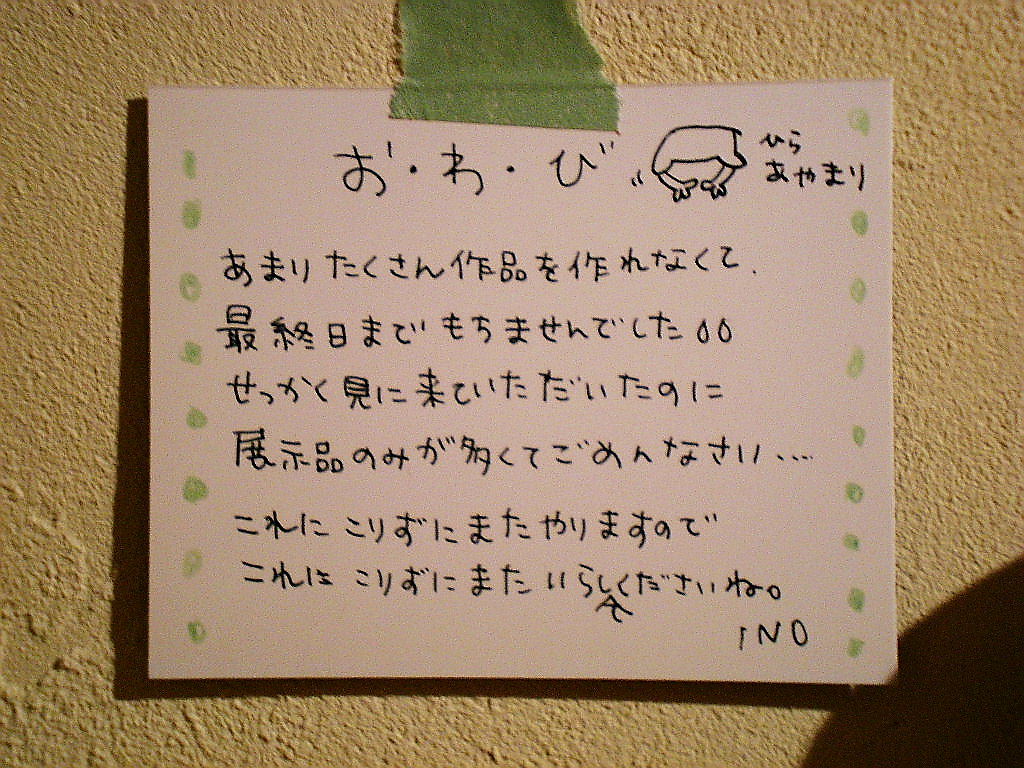 お・わ・び
ひら
あやまり
あまりたくさん作品を作れなくて、
最終日までもちませんでした00
せっかく見に来ていただいたのに
展示品のみが多くてごめんなさい・・・・
これにこりずにまたやりますので
これにこりずにまたいらしてくださいね。
INO